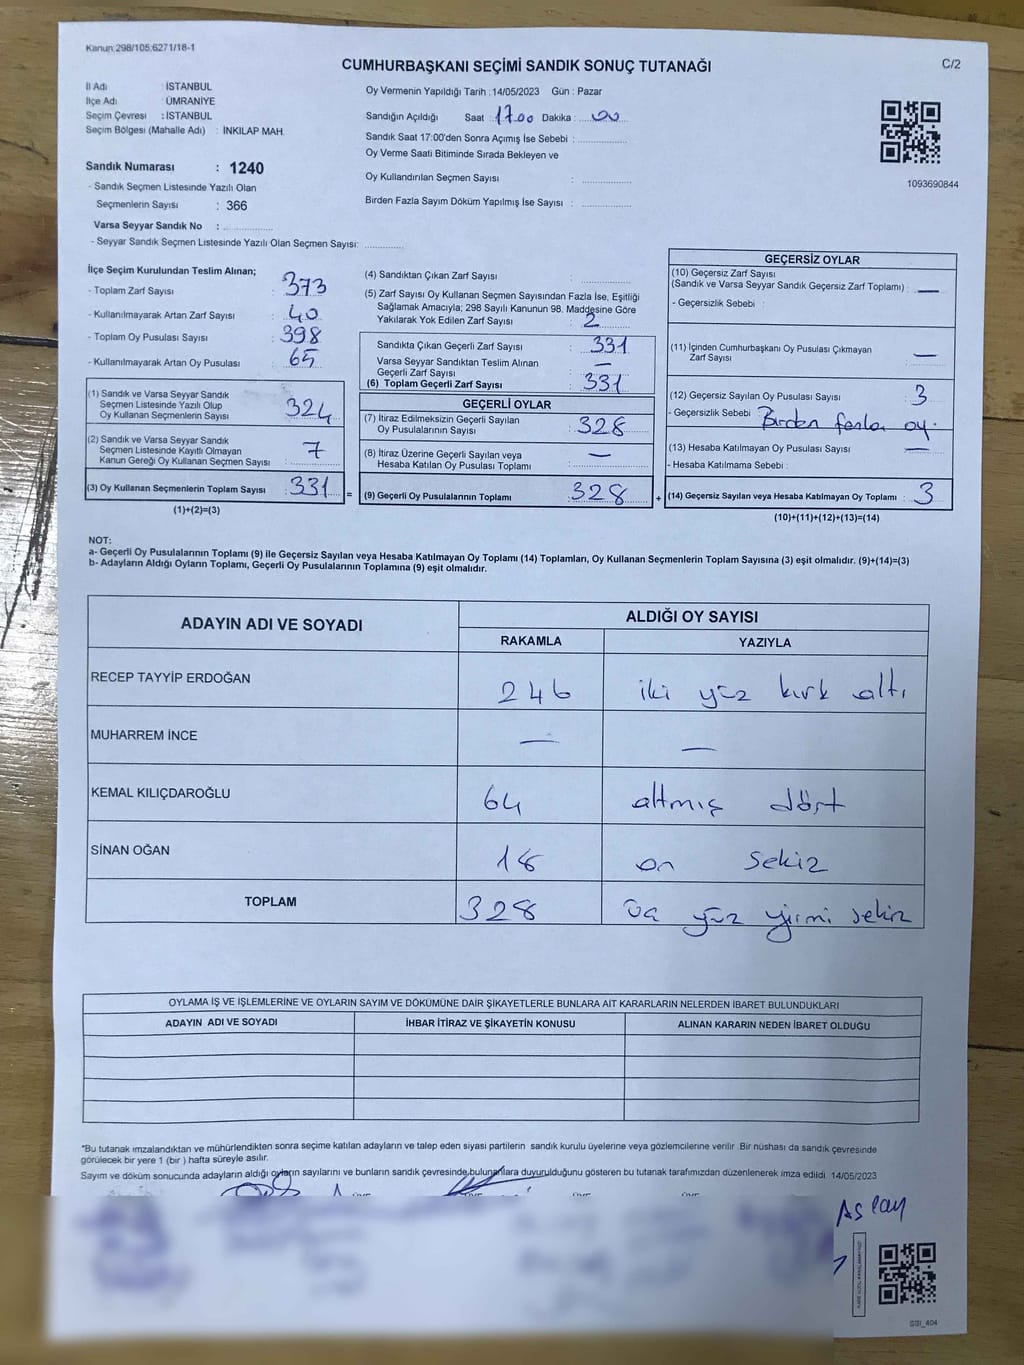 Kanun:298/105:6271/18-1
C/2
CUMHURBAŞKANI SEÇİMİ SANDIK SONUÇ TUTANAĞI
İl Adı : İSTANBUL
İlçe Adı : ÜMRANİYE
Seçim Çevresi : İSTANBUL
Seçim Bölgesi (Mahalle Adı) : İNKILAP MAH.
Sandık Numarası : 1240
- Sandık Seçmen Listesinde Yazılı Olan
Seçmenlerin Sayısı : 366
Varsa Seyyar Sandık No :
- Seyyar Sandık Seçmen Listesinde Yazılı Olan Seçmen Sayısı:
Oy Vermenin Yapıldığı Tarih :14/05/2023 Gün : Pazar
Sandığın Açıldığı Saat : 17.00 Dakika : 00
Sandık Saat 17:00'den Sonra Açımış İse Sebebi :
Oy Verme Saati Bitiminde Sırada Bekleyen ve
Oy Kullandırılan Seçmen Sayısı :
Birden Fazla Sayım Döküm Yapılmış İse Sayısı :
1093690844
İlçe Seçim Kurulundan Teslim Alınan;
- Toplam Zarf Sayısı : 373
- Kullanılmayarak Artan Zarf Sayısı : 40
- Toplam Oy Pusulası Sayısı : 398
- Kullanılmayarak Artan Oy Pusulası : 65
(1) Sandık ve Varsa Seyyar Sandık
Seçmen Listesinde Yazılı Olup
Oy Kullanan Seçmenlerin Sayısı : 324
(2) Sandık ve Varsa Seyyar Sandık
Seçmen Listesinde Kayıtlı Olmayan
Kanun Gereği Oy Kullanan Seçmen Sayısı : 7
(3) Oy Kullanan Seçmenlerin Toplam Sayısı : 331 =
(1)+(2)=(3)
(4) Sandıktan Çıkan Zarf Sayısı :
(5) Zarf Sayısı Oy Kullanan Seçmen Sayısından Fazla İse, Eşitliği
Sağlamak Amacıyla; 298 Sayılı Kanunun 98. Maddesine Göre
Yakılarak Yok Edilen Zarf Sayısı : 2
Sandıkta Çıkan Geçerli Zarf Sayısı : 331
Varsa Seyyar Sandıktan Teslim Alınan
Geçerli Zarf Sayısı : —
(6) Toplam Geçerli Zarf Sayısı : 331
GEÇERLİ OYLAR
(7) İtiraz Edilmeksizin Geçerli Sayılan
Oy Pusulalarının Sayısı : 328
(8) İtiraz Üzerine Geçerli Sayılan veya
Hesaba Katılan Oy Pusulası Toplamı : —
(9) Geçerli Oy Pusulalarının Toplamı : 328 +
GEÇERSİZ OYLAR
(10) Geçersiz Zarf Sayısı
(Sandık ve Varsa Seyyar Sandık Geçersiz Zarf Toplamı) : —
- Geçersizlik Sebebi :
(11) İçinden Cumhurbaşkanı Oy Pusulası Çıkmayan
Zarf Sayısı : —
(12) Geçersiz Sayılan Oy Pusulası Sayısı : 3
- Geçersizlik Sebebi : Birden fazla oy.
(13) Hesaba Katılmayan Oy Pusulası Sayısı : —
- Hesaba Katılmama Sebebi :
(14) Geçersiz Sayılan veya Hesaba Katılmayan Oy Toplamı : 3
(10)+(11)+(12)+(13)=(14)
NOT:
a- Geçerli Oy Pusulalarının Toplamı (9) ile Geçersiz Sayılan veya Hesaba Katılmayan Oy Toplamı (14) Toplamları, Oy Kullanan Seçmenlerin Toplam Sayısına (3) eşit olmalıdır. (9)+(14)=(3)
b- Adayların Aldığı Oyların Toplamı, Geçerli Oy Pusulalarının Toplamına (9) eşit olmalıdır.
ADAYIN ADI VE SOYADI
ALDIĞI OY SAYISI
RAKAMLA YAZIYLA
RECEP TAYYİP ERDOĞAN 246 iki yüz kırk altı
MUHARREM İNCE — —
KEMAL KILIÇDAROĞLU 64 altmış dört
SİNAN OĞAN 18 on sekiz
TOPLAM 328 üç yüz yirmi sekiz
OYLAMA İŞ VE İŞLEMLERİNE VE OYLARIN SAYIM VE DÖKÜMÜNE DAİR ŞİKAYETLERLE BUNLARA AİT KARARLARIN NELERDEN İBARET BULUNDUKLARI
ADAYIN ADI VE SOYADI İHBAR İTİRAZ VE ŞİKAYETİN KONUSU ALINAN KARARIN NEDEN İBARET OLDUĞU
*Bu tutanak imzalandıktan ve mühürlendikten sonra seçime katılan adayların ve talep eden siyasi partilerin sandık kurulu üyelerine veya gözlemcilerine verilir. Bir nüshası da sandık çevresinde
görülecek bir yere 1 (bir ) hafta süreyle asılır.
Sayım ve döküm sonucunda adayların aldığı oyların sayılarını ve bunların sandık çevresinde bulunanlara duyurulduğunu gösteren bu tutanak tarafımızdan düzenlenerek imza edildi. 14/05/2023
Aslay
SSI_404